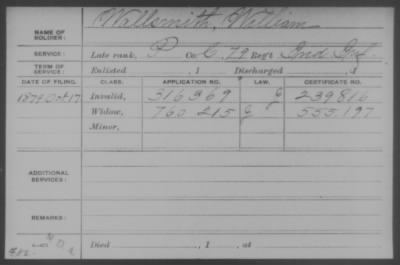 NAME OF SOLDIER: Wallsmith, William
SERVICE: Late rank, P Co. C, 79 Reg't Ind Inf.
TERM OF SERVICE: Enlisted , 1 Discharged , 1
DATE OF FILING. CLASS. APPLICATION NO. LAW. CERTIFICATE NO.
1879 Oct 17 Invalid, 316369 G 239816
Widow, 760 215 G 555,197
Minor,
ADDITIONAL SERVICES:
REMARKS:
Died , 1 , at